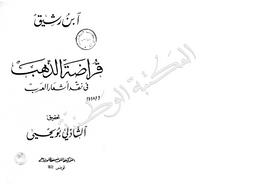 ابن رشيق
قراضة الذهب
في نقد أشعار العرب
تحقيق
الشاذلي بويحيى
المكتبة الوطنية